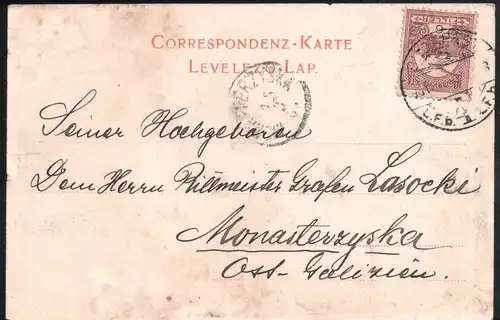 FILLÉR
CORRESPONDENZ-KARTE
LEVELEZ LAP.
Seiner Hochgeboren
Dem Herrn Rittmeister Grafen Lasocki
Monasterzyska
Ost-Galizien.